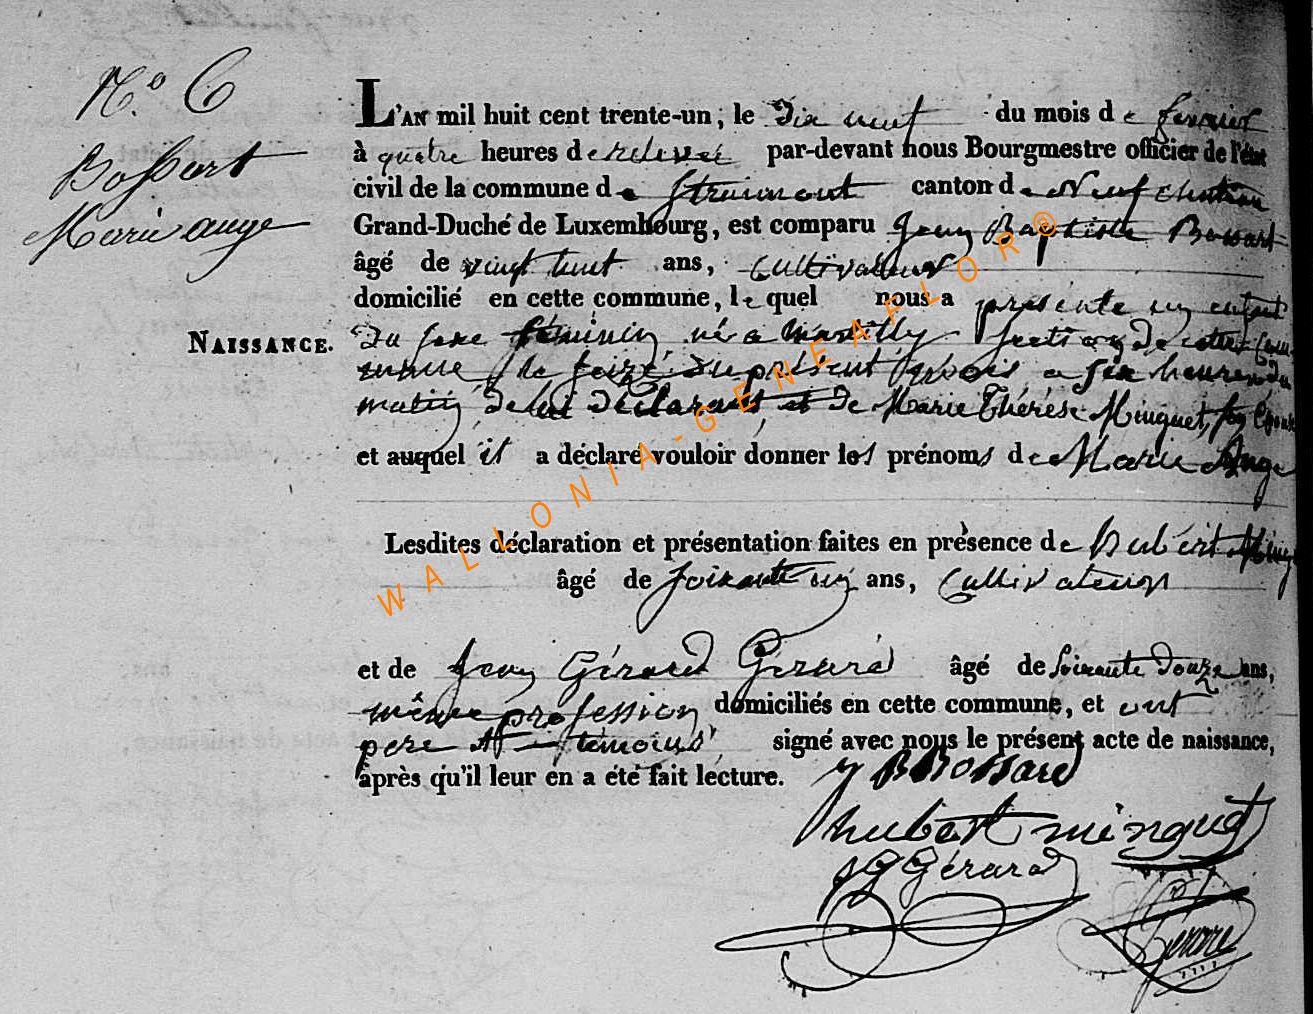 N.o 6
Bossart
Marie ange
NAISSANCE.
L'AN mil huit cent trente-un, le dix neuf du mois de fevrier
à quatre heures de relevée par-devant nous Bourgmestre officier de l'état
civil de la commune de Straimont canton de Neufchateau
Grand-Duché de Luxembourg, est comparu Jean Baptiste Bossart
âgé de vingt huit ans, Cultivateur
domicilié en cette commune, lequel nous a présenté un enfant
Du sexe féminin né a Martilly Section de cette Com-
mune le seize du présent mois a six heures du
matin de lui déclarant et de Marie Thérèse Minguet, son Epouse
et auquel il a déclaré vouloir donner les prénoms de Marie Ange
Lesdites déclaration et présentation faites en présence de Hubért Ming
âgé de soixante un ans, Cultivateur
et de Jean Gérard Gérard âgé de soixante douze ans,
même profession domiciliés en cette commune, et ont
pere et témoins signé avec nous le présent acte de naissance,
après qu'il leur en a été fait lecture. J B Bossard
hubert minguet
JG Gérard
WALLONIA-GENEAFLOR®